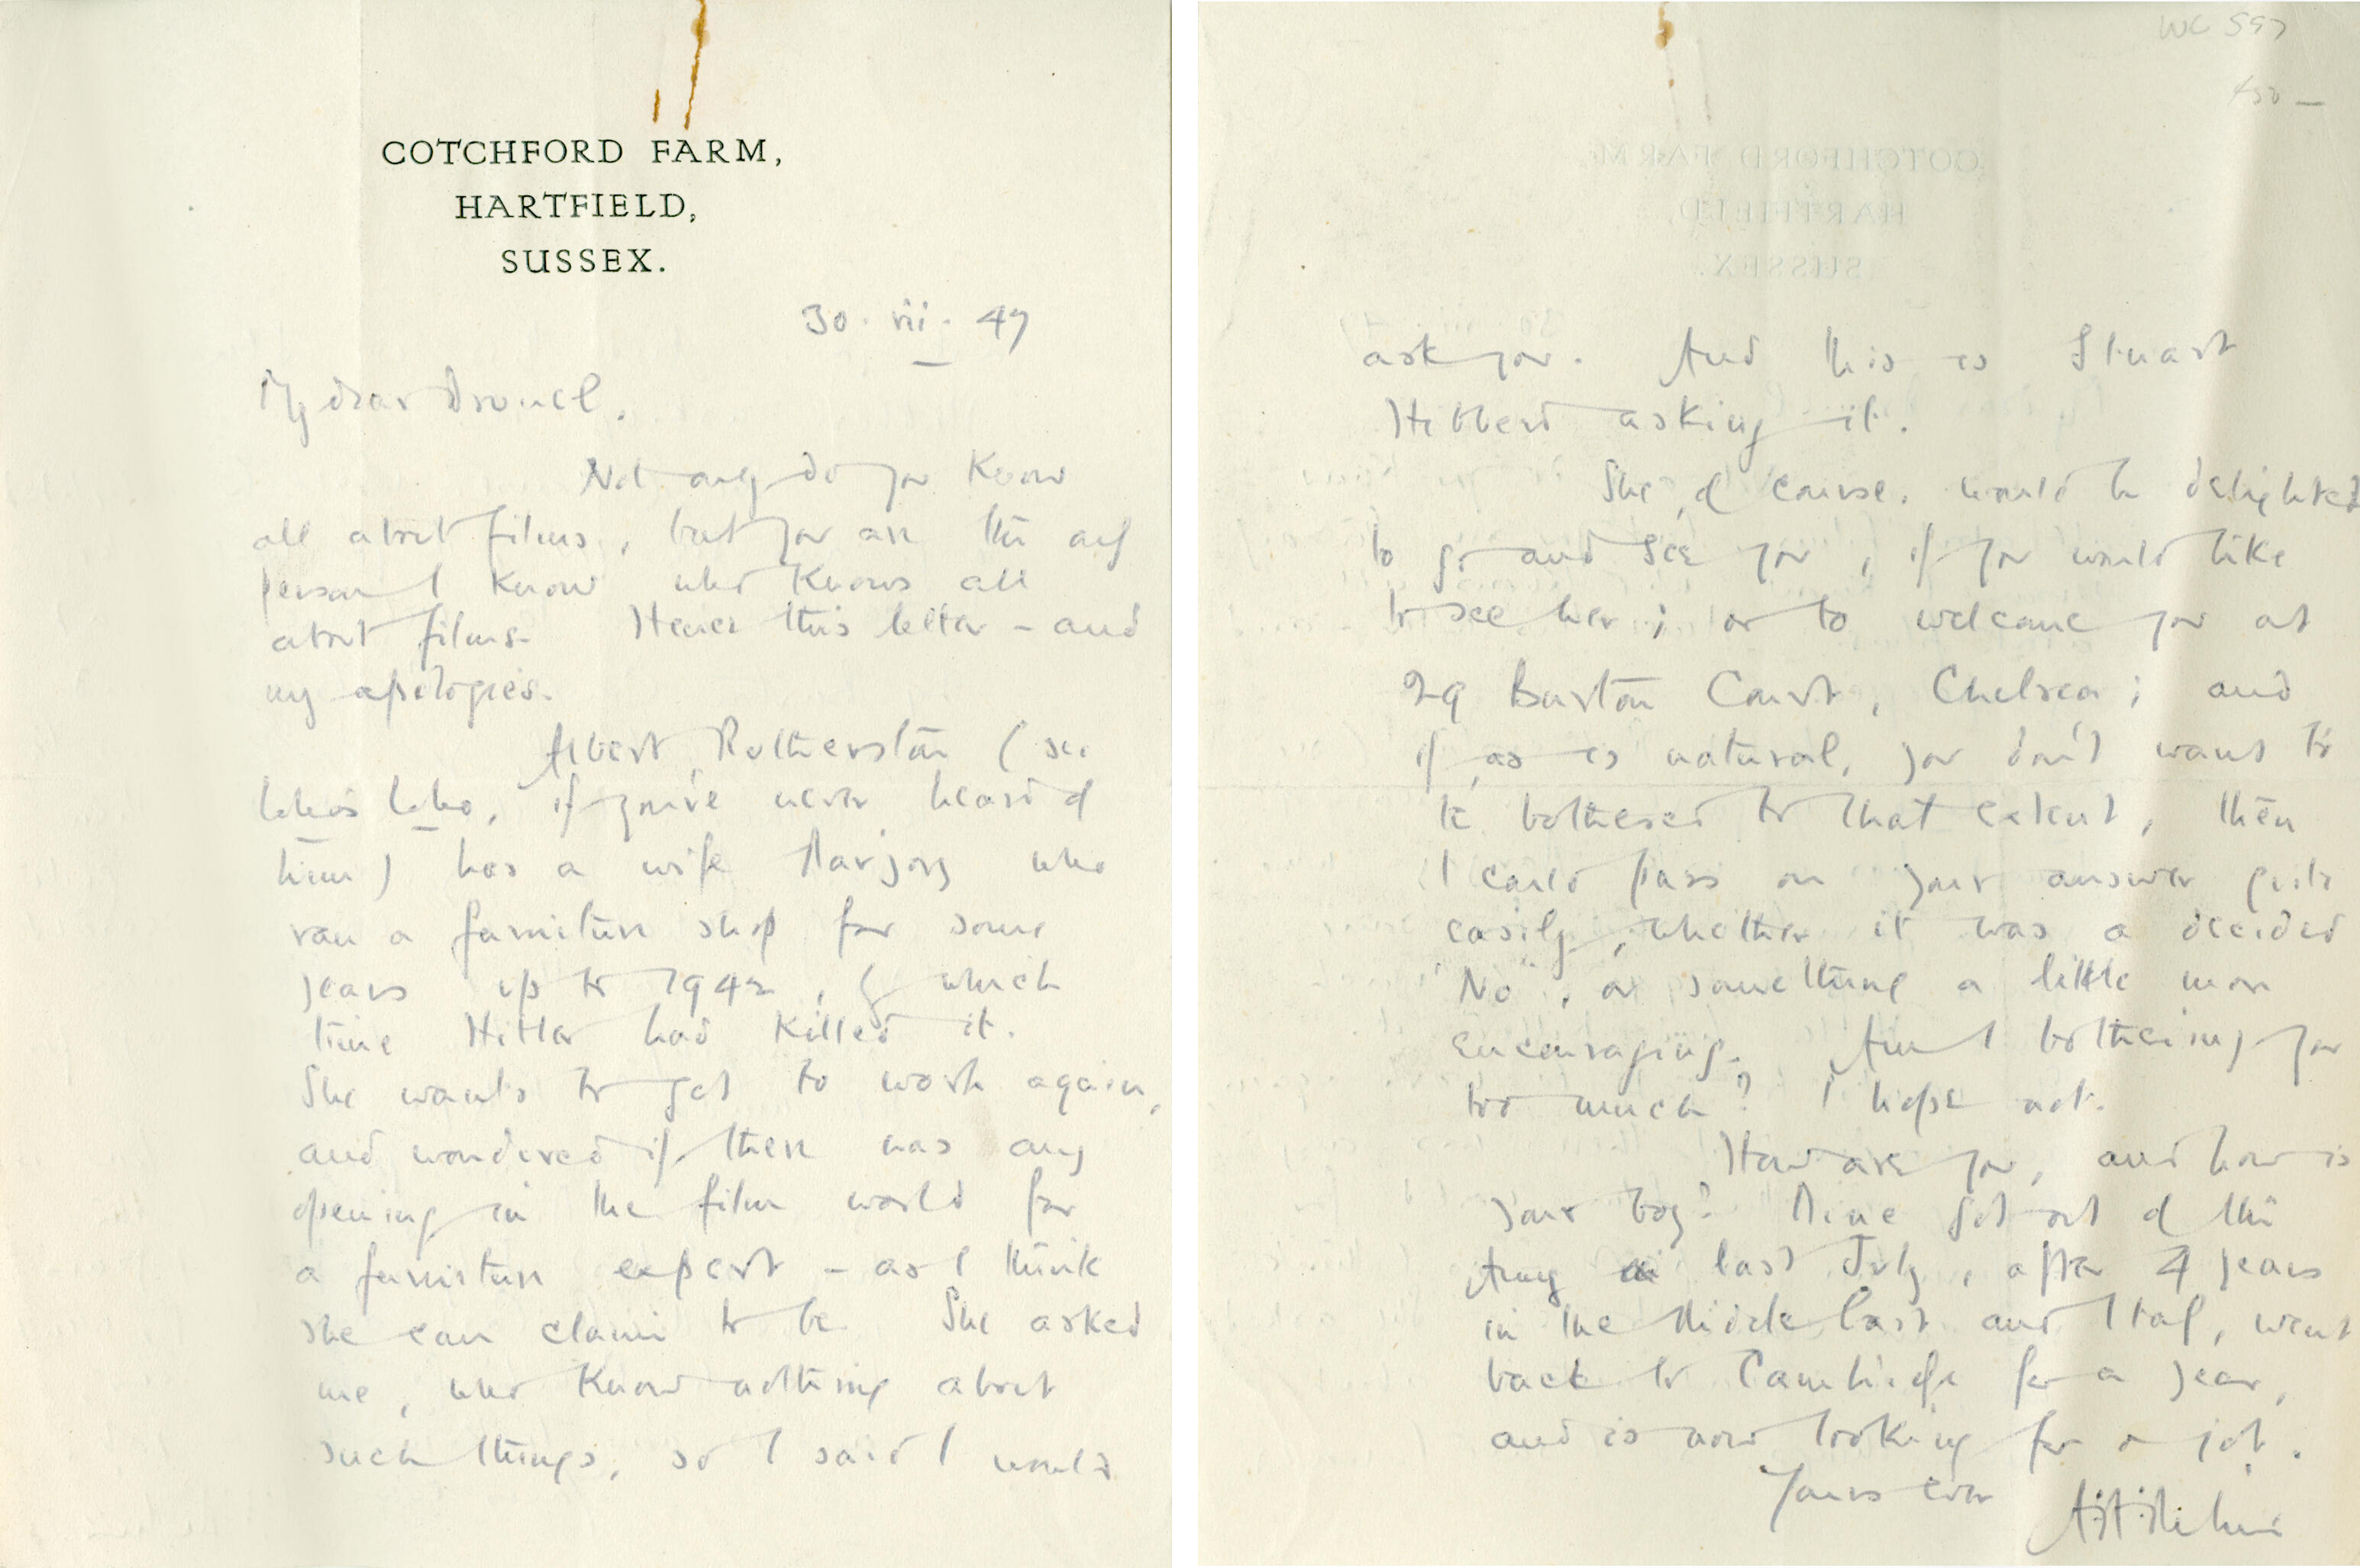 COTCHFORD FARM,
HARTFIELD,
SUSSEX.
30. vii. 47
My dear
Not only do you know
all about films, but you are the only
person I know who knows all
about films. Hence this letter - and
my apologies.
Albert Rutherston (see
Who's Who, if you've never heard of
him) has a wife Marjory who
ran a furniture shop for some
years up to 1942, by which
time Hitler had killed it.
She wants to get to work again,
and wondered if there was any
opening in the film world for
a furniture expert - as I think
she can claim to be. She asked
me, who know nothing about
such things, so I said I would
WC 597
ask you. And this is Stuart
Hibberd asking it.
She, of course, would be delighted
to go and see you, if you would like
to see her; or to welcome you at
29 Burton Court, Chelsea; and
if, as is natural, you don't want to
be bothered to that extent, then
I could pass on your answer quite
easily, whether it was a decided
'No', or something a little more
encouraging. Am I bothering you
too much? I hope not.
How are you, and how is
your boy? Mine got out of the
Army last July, after 4 years
in the Middle East and Italy, went
back to Cambridge for a year,
and is now looking for a job.
Yours ever
A. A. Milne